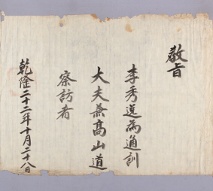 敎旨
李秀逵爲通訓
大夫兼高山道
察訪者
乾隆二十二年十月二十八日